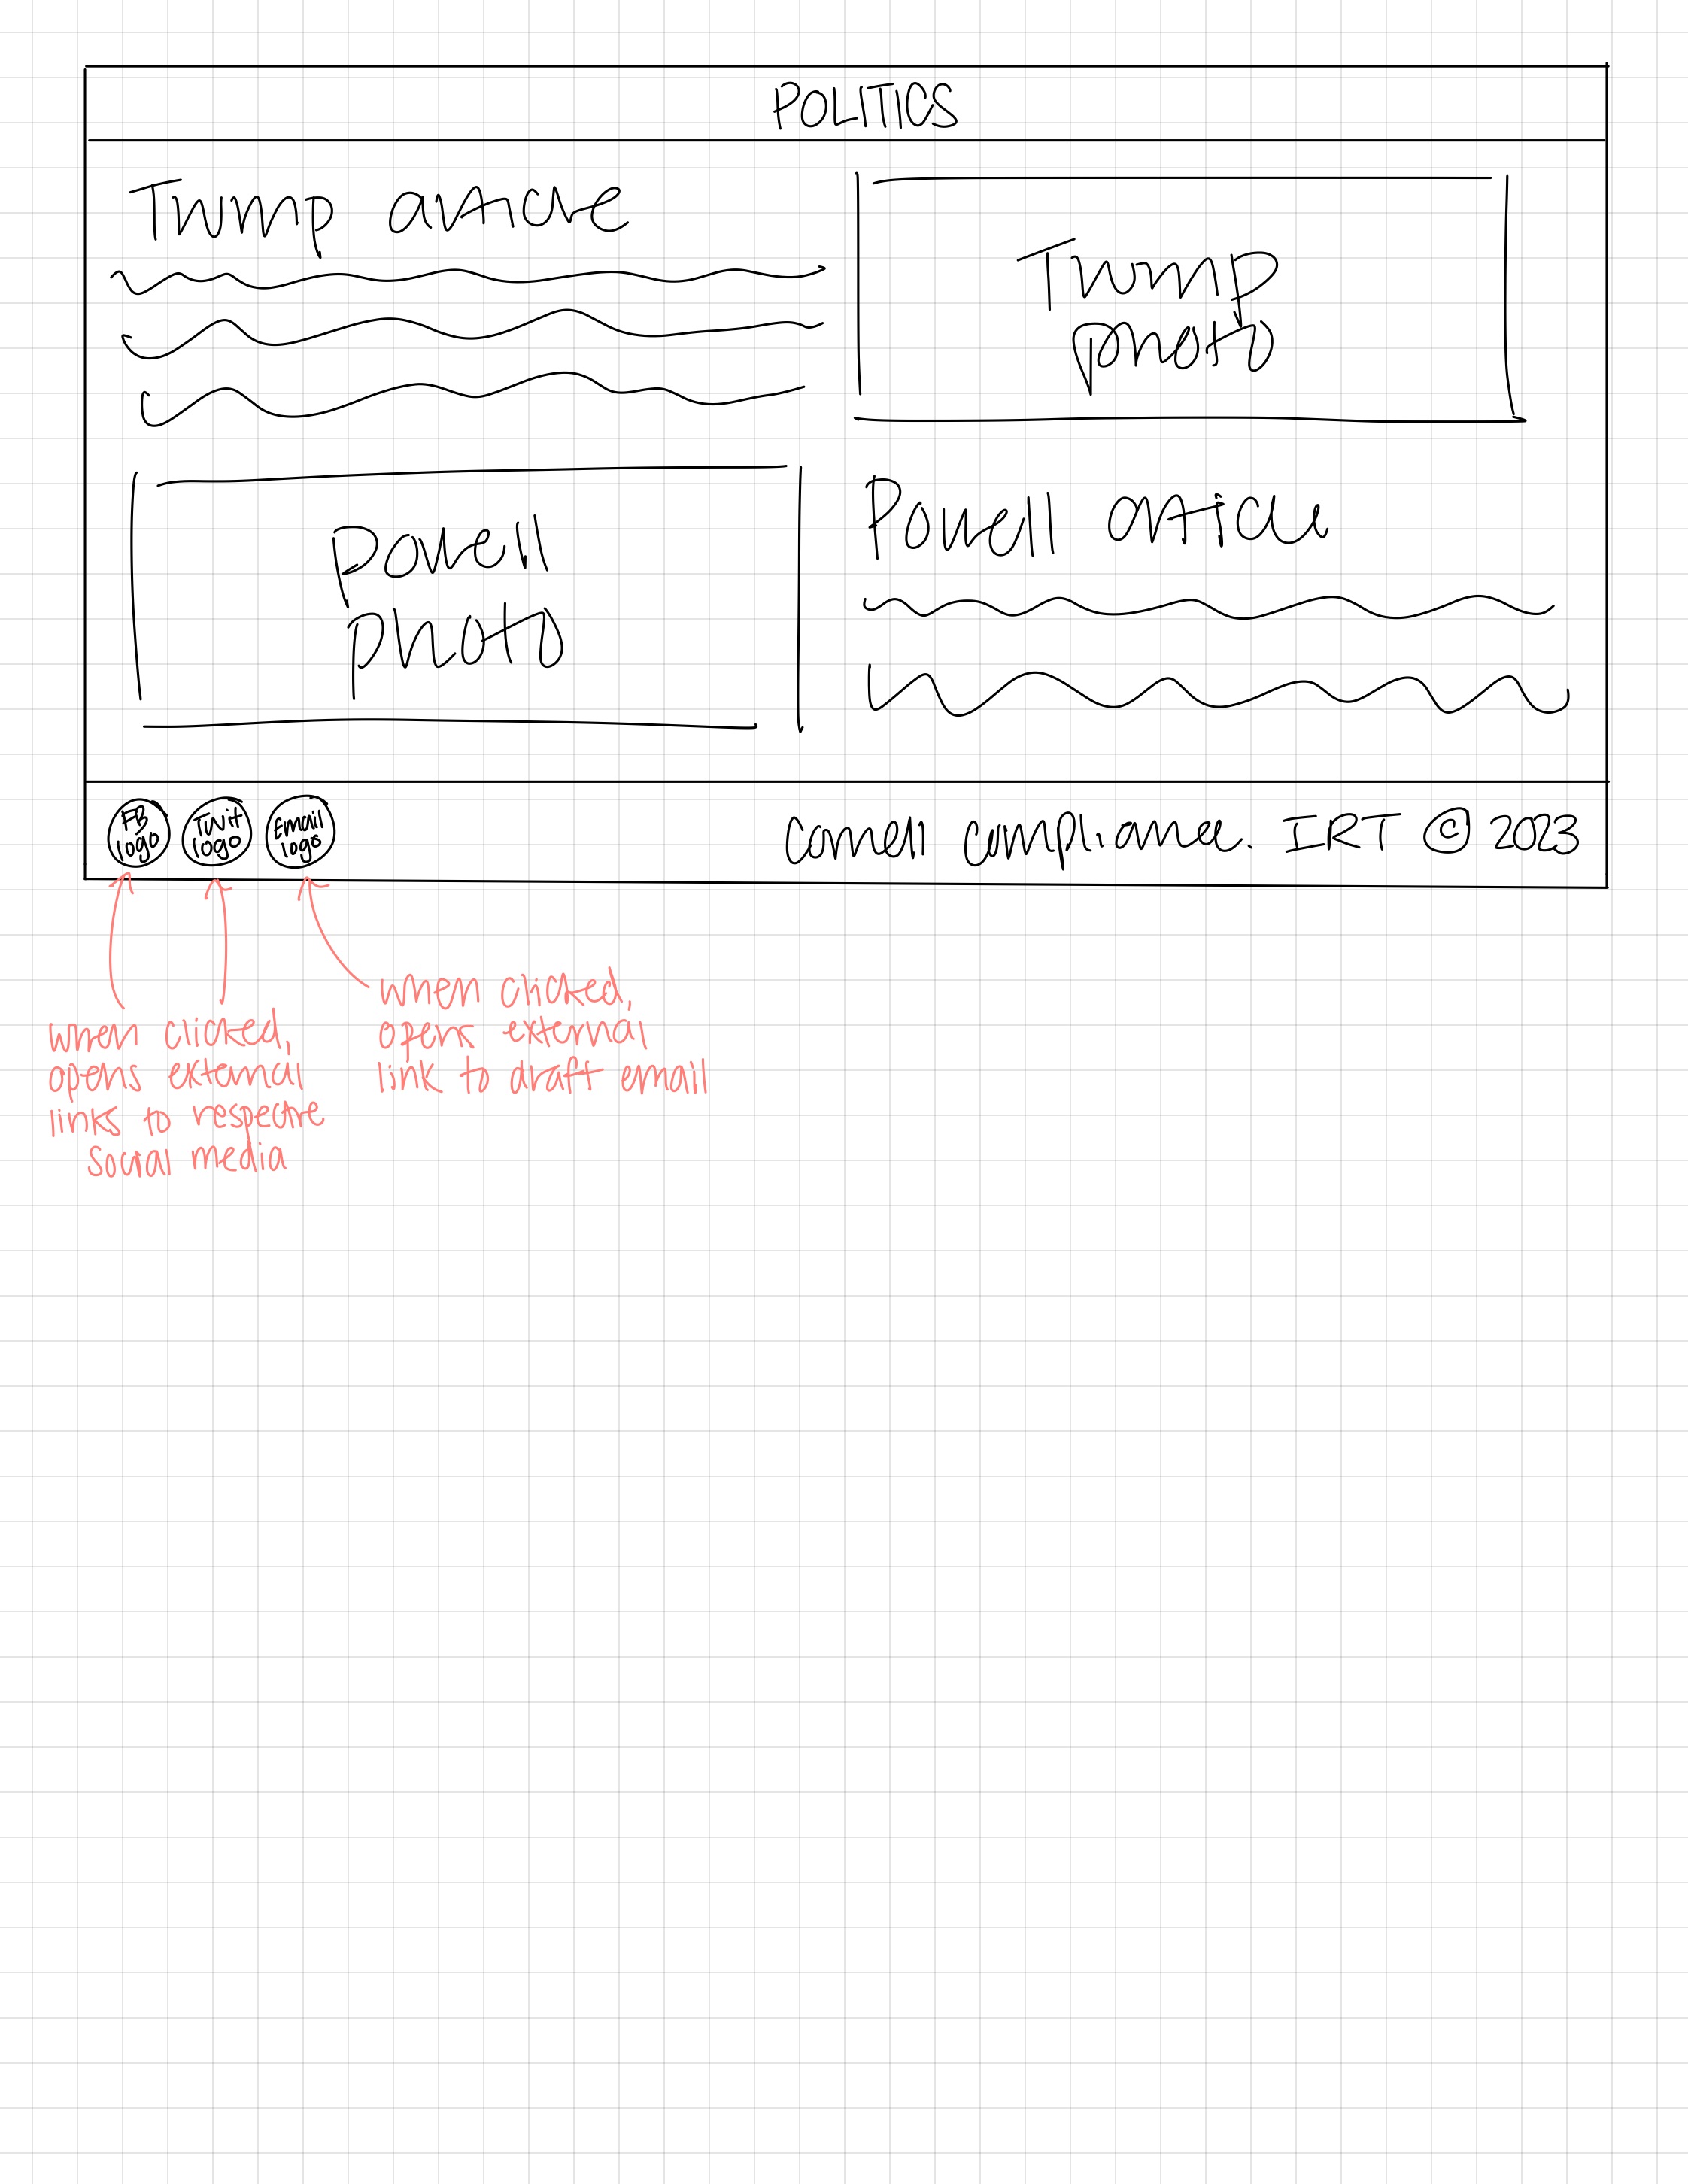 POLITICS
Trump article
Trump
photo
Powell
photo
Powell article
FB
logo
Twit
logo
Email
logo
Cornell Compliance. IRT © 2023
when clicked,
opens external
links to respective
social media
when clicked,
opens external
link to draft email